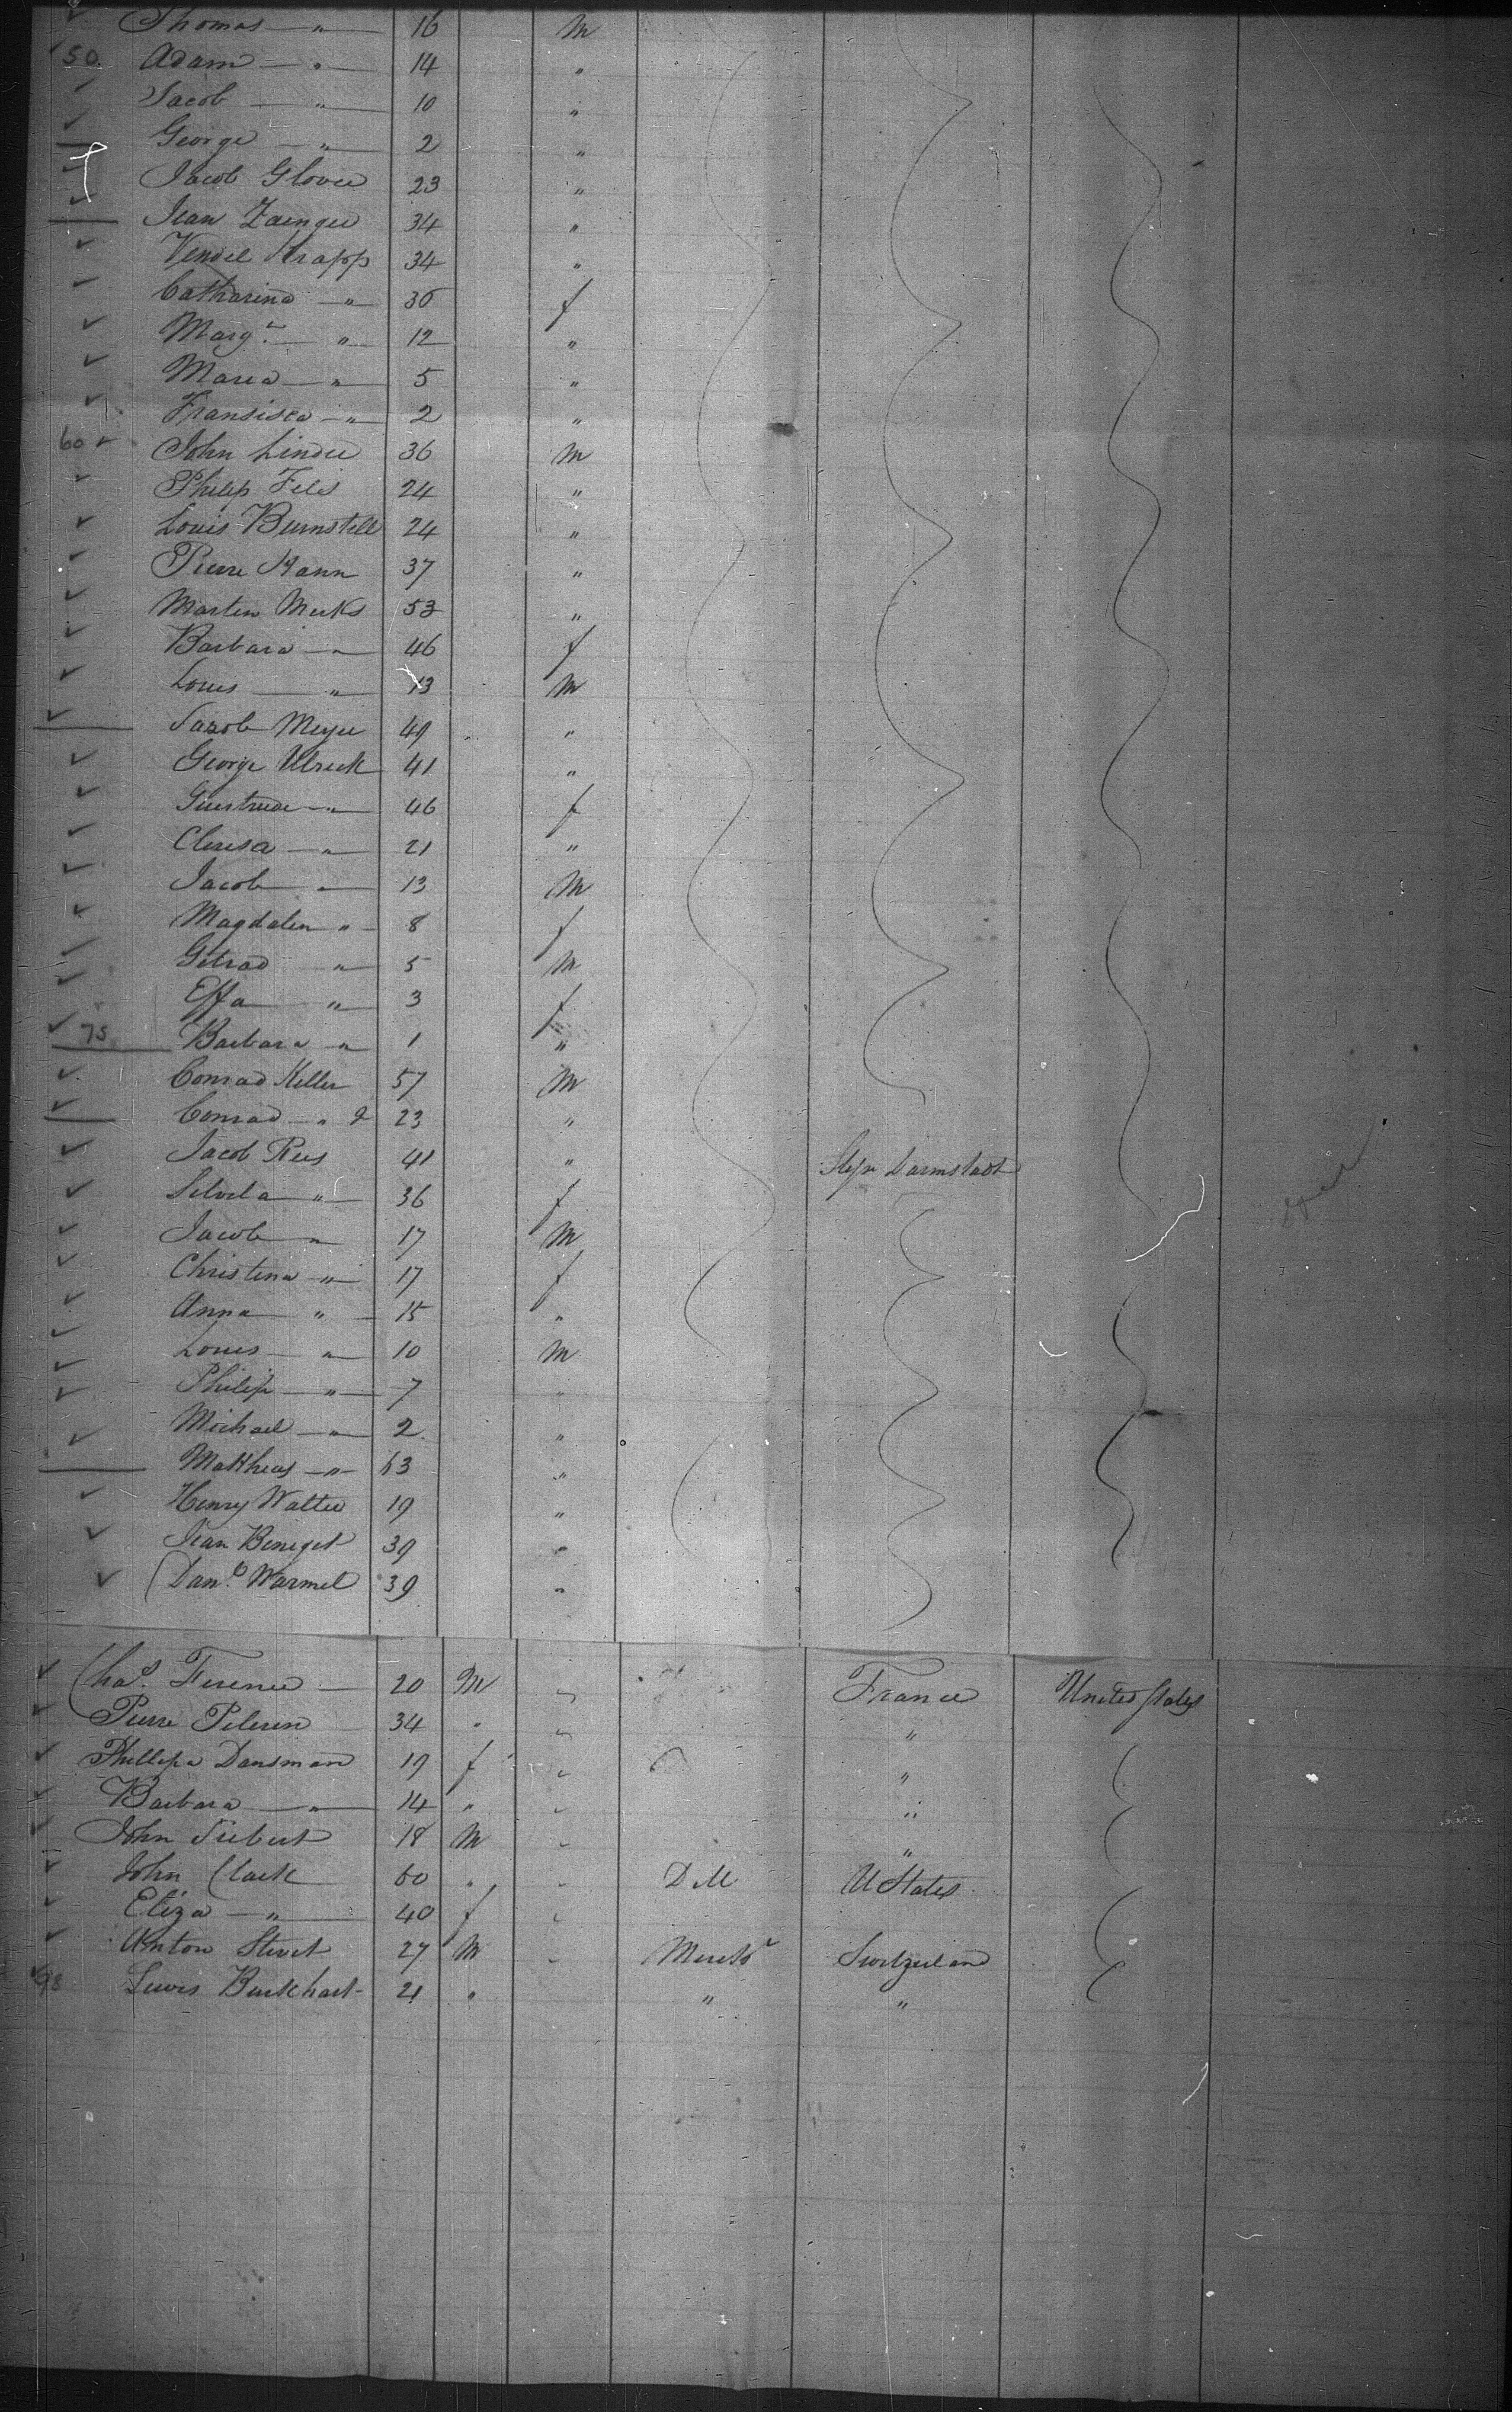 Thomas — " — 16 M
50 Adam — " — 14 "
Jacob — " — 10 "
George — " — 2 "
Jacob Glover 23 "
Jean Zaenger 34 "
Vendel Krapp 34 "
Catharina — " 36 f
Marg.r — " 12 "
Maria — " 5 "
Fransisca — " 2 "
60 John Linder 36 M
Philip Fels 24 "
Louis Burnstell 24 "
Pierre Kann 37 "
Martin Merks 53 "
Barbara — " 46 f
Louis — " 13 M
Jacob Meyer 49 "
George Ulreck 41 "
Guertrude — " 46 f
Clerisa — " 21 "
Jacob — " 13 M
Magdalen " 8 f
Getrad " 5 M
Effa — " 3 f
75 Barbara " 1 "
Conrad Keller 57 M
Conrad — " 2 23 "
Jacob Rees 41 " Darmstadt
" 36 f
Jacob " 17 M
Christina " 17 f
Anna " 15 "
Louis — " 10 M
Philip — " 7 "
Michael — " 2 "
Mattheas — " 63 "
Henry Walter 19 "
Jean 39 "
Dan.l Warmel 39 "
Cha.s 20 M " France United States
Pierre Peleren 34 " " "
Phillipa Dansman 19 f " "
Barbara — " 14 " " "
John Siebert 18 M " "
John Clark 60 " " U States
Eliza — " 40 f "
Anton 27 M Switzerland
Lewis Burkhart 21 " " "